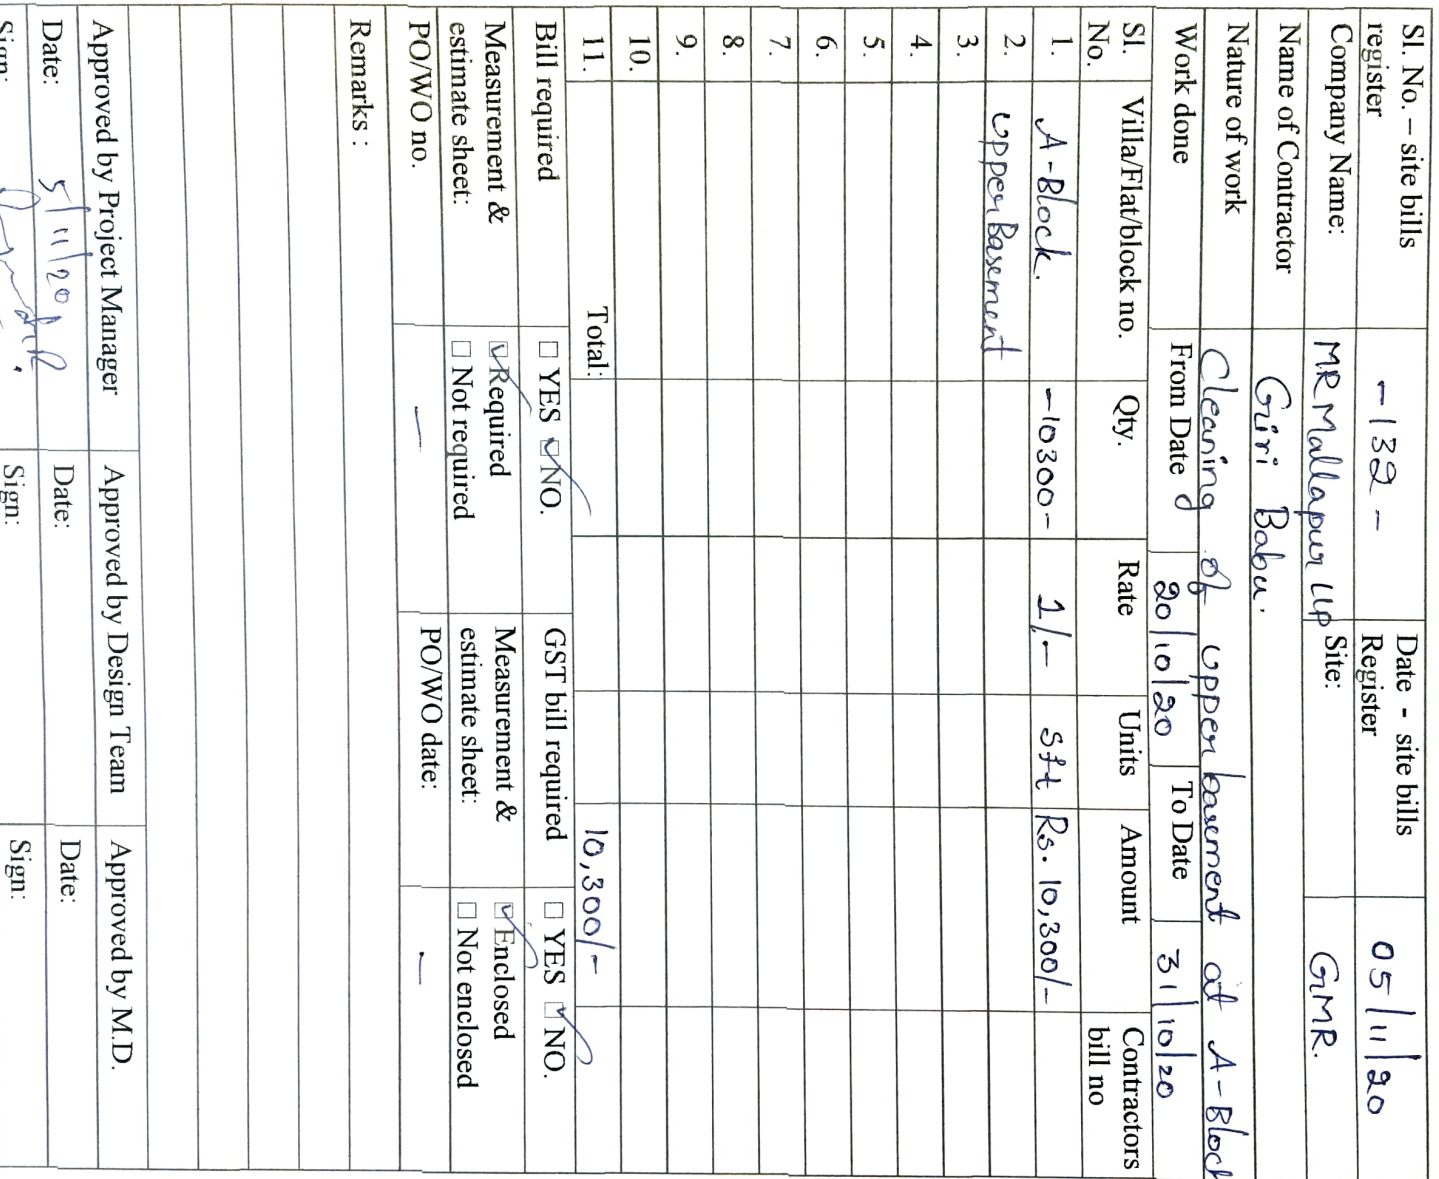 Sl. No. – site bills register -132- Date - site bills Register 05/11/20
Company Name: MR Mallapur LLP Site: GMR.
Name of Contractor Giri Babu.
Nature of work Cleaning of upper basement at A-Block
Work done From Date 20/10/20 To Date 31/10/20
Sl. No. Villa/Flat/block no. Qty. Rate Units Amount Contractors bill no
1. A-Block. -10300- 1/- Sft Rs. 10,300/-
2. Upper Basement
3.
4.
5.
6.
7.
8.
9.
10.
11. Total: 10,300/-
Bill required ☐ YES ☑ NO. GST bill required ☐ YES ☑ NO.
Measurement & estimate sheet: ☑ Required ☐ Not required Measurement & estimate sheet: ☑ Enclosed ☐ Not enclosed
PO/WO no. — PO/WO date: —
Remarks :
Approved by Project Manager Approved by Design Team Approved by M.D.
Date: 5/11/20 Date: Date:
Sign: Sign: Sign: